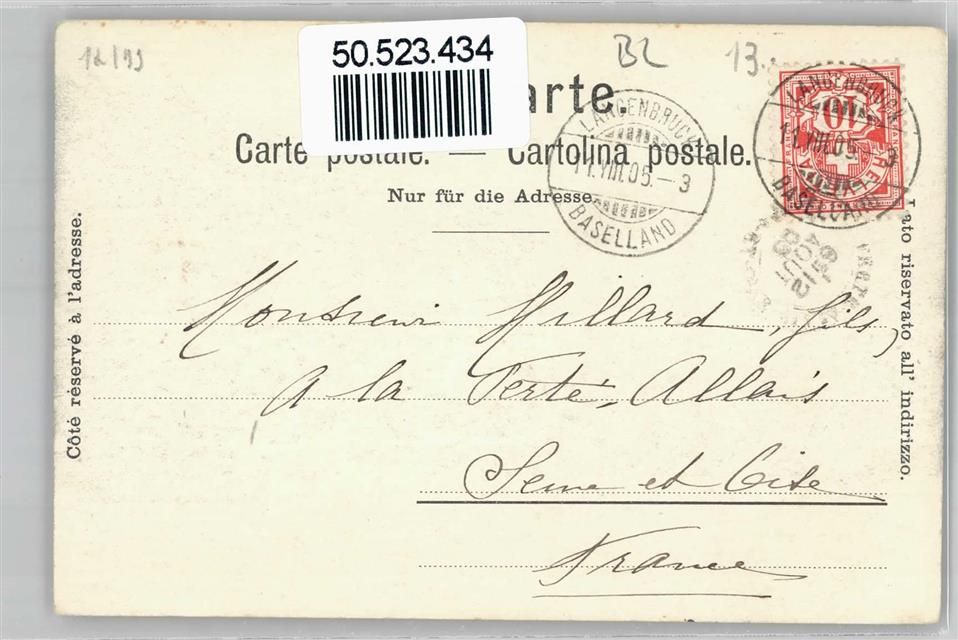 12/99
50.523.434
BL
13.-
arte.
Carte postale. — Cartolina postale.
Nur für die Adresse.
LANGENBRUCK
11.VIII.05.–3
BASELLAND
10
LANGENBRUCK
11.VIII.05.–3
BASELLAND
Côté réservé à l'adresse.
Lato riservato all' indirizzo.
Monsieur Millard, fils,
A la Ferté-Allais
Seine et Oise
France